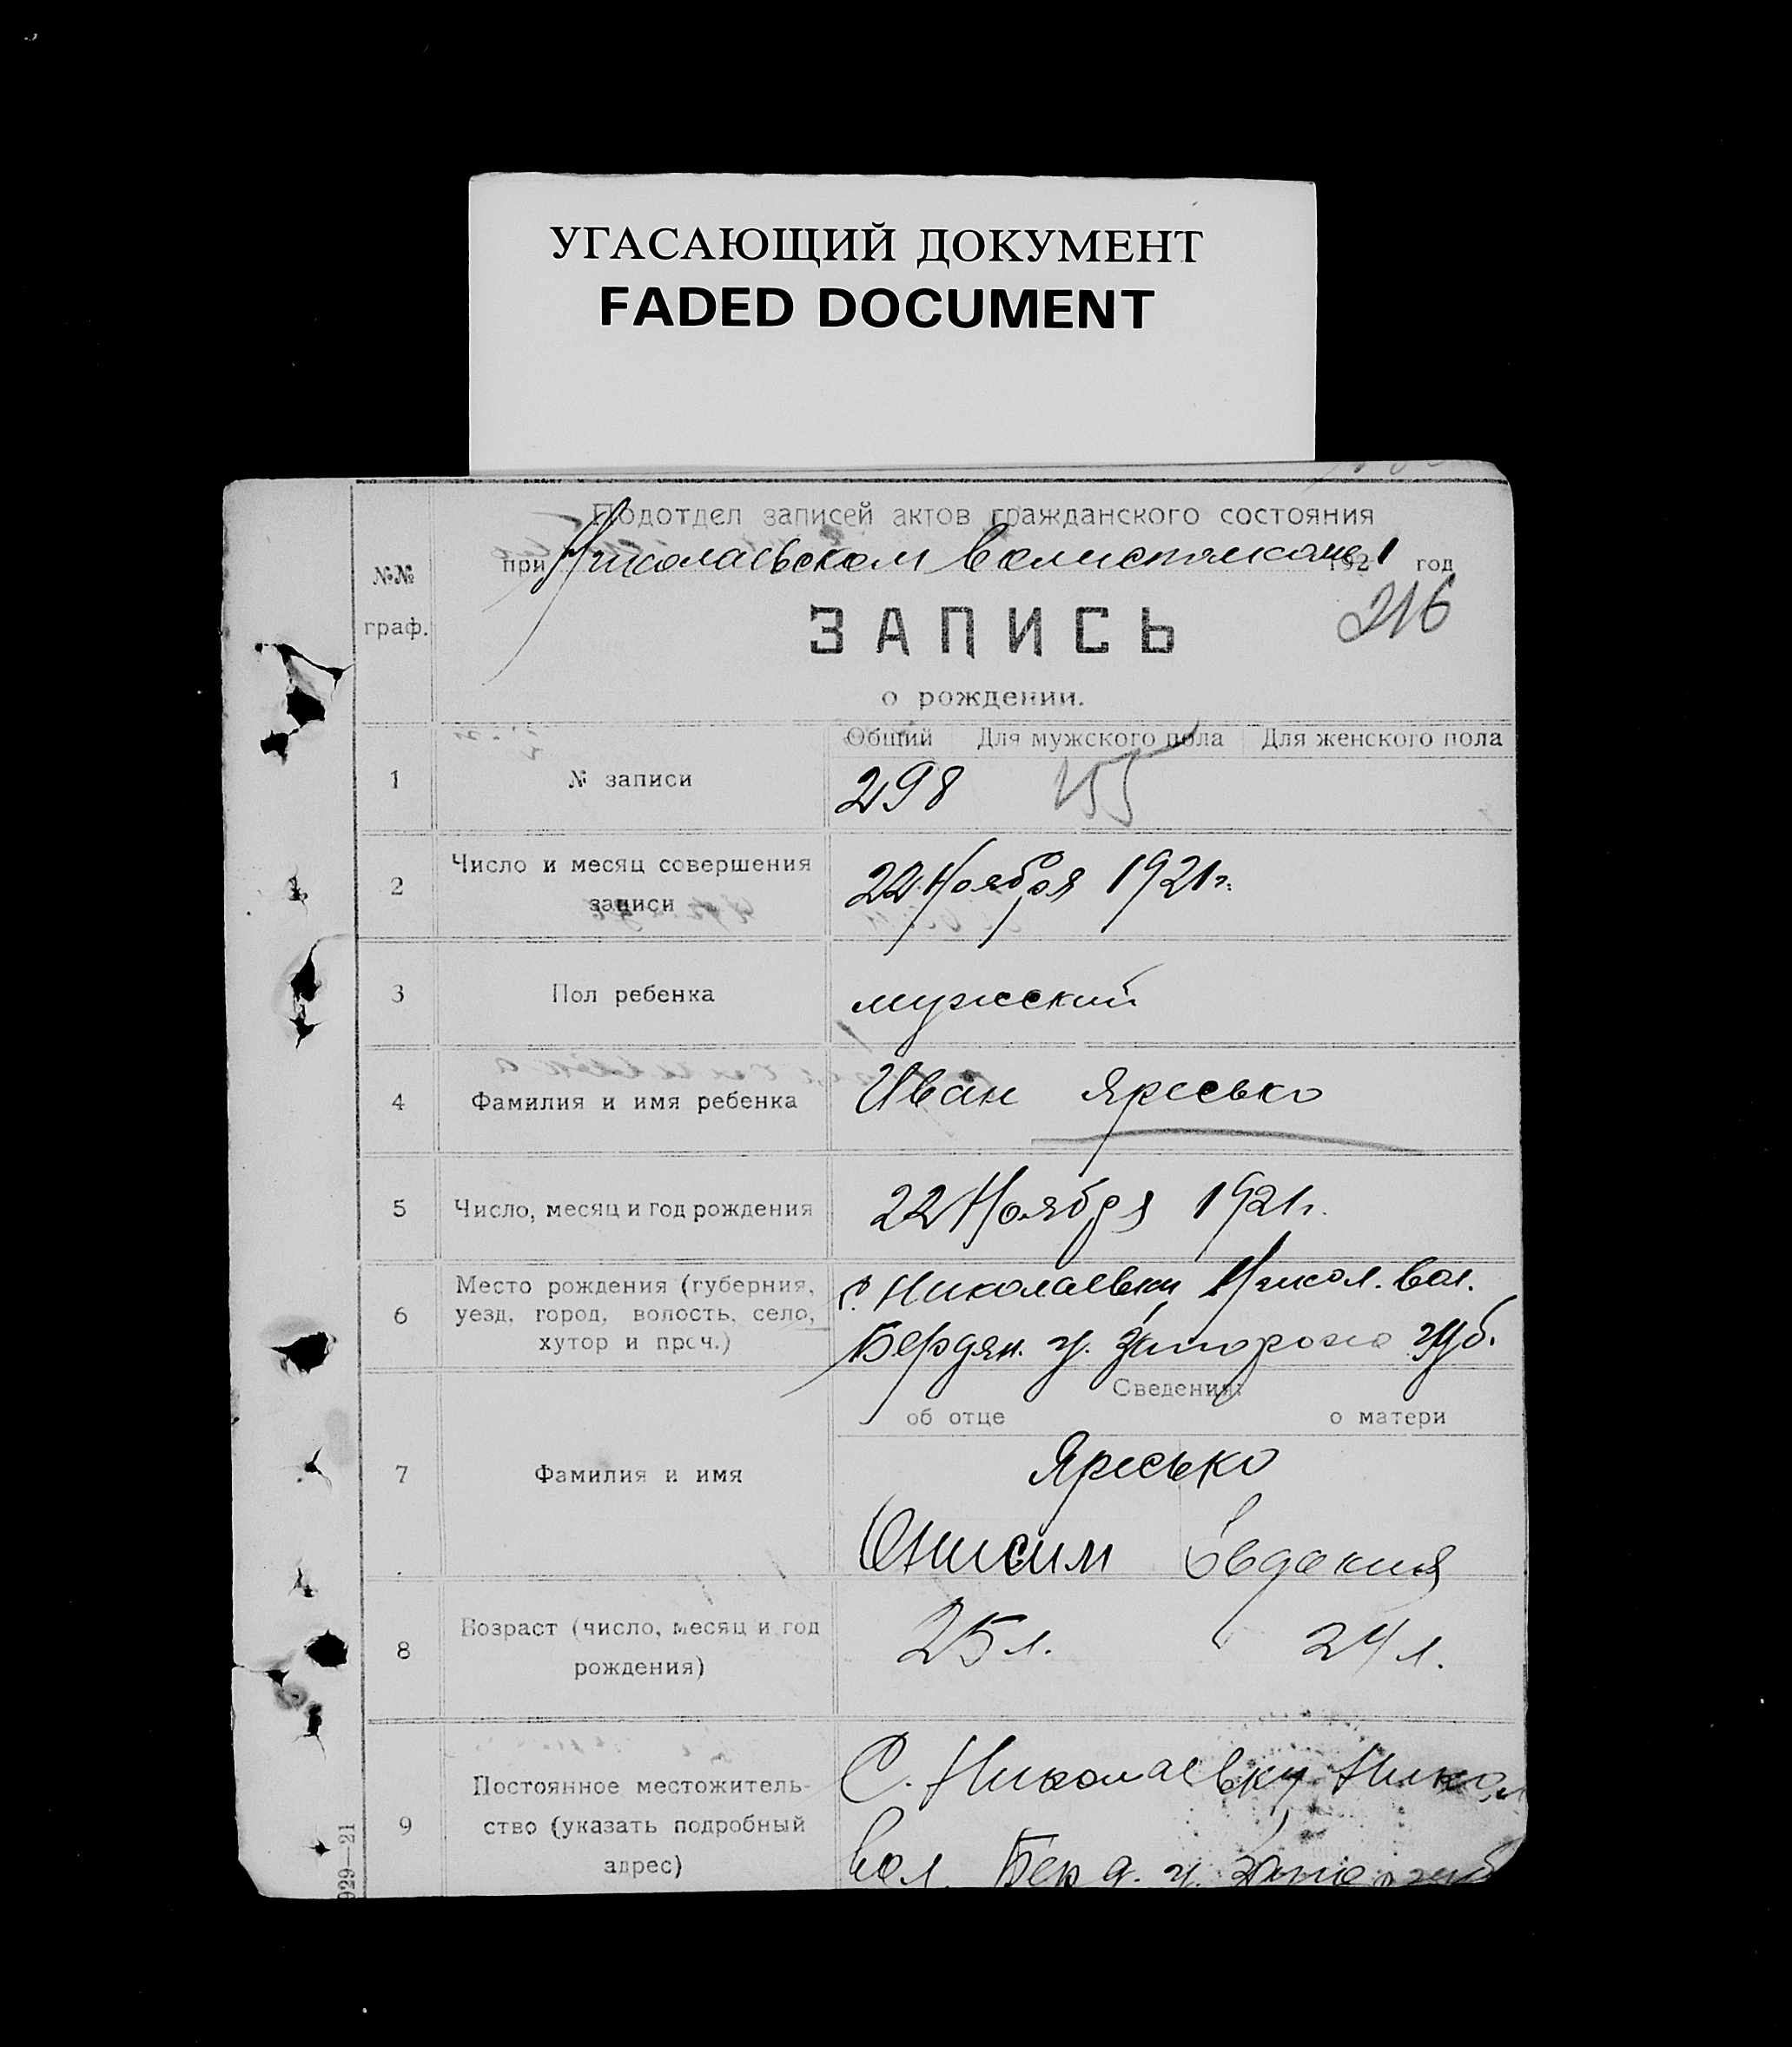 УГАСАЮЩИЙ ДОКУМЕНТ
FADED DOCUMENT
Подотдел записей актов гражданского состояния
при Николаевском волисполкоме 1921 год
№№ граф.
216
ЗАПИСЬ
о рождении.
Общий Для мужского пола Для женского пола
1 № записи 298 155
2 Число и месяц совершения записи 22 Ноября 1921 г.
3 Пол ребенка мужской
4 Фамилия и имя ребенка Иван Яресько
5 Число, месяц и год рождения 22 Ноября 1921 г.
6 Место рождения (губерния, уезд, город, волость, село, хутор и проч.)
с. Николаевки Никол. вол.
Бердян. у. Запорож губ.
Сведения:
об отце о матери
7 Фамилия и имя Яресько
Онисим Евдокия
8 Возраст (число, месяц и год рождения) 25 л. 24 л.
9 Постоянное местожительство (указать подробный адрес)
С. Николаевку Никол
вол. Берд. у. Запор губ
929—21